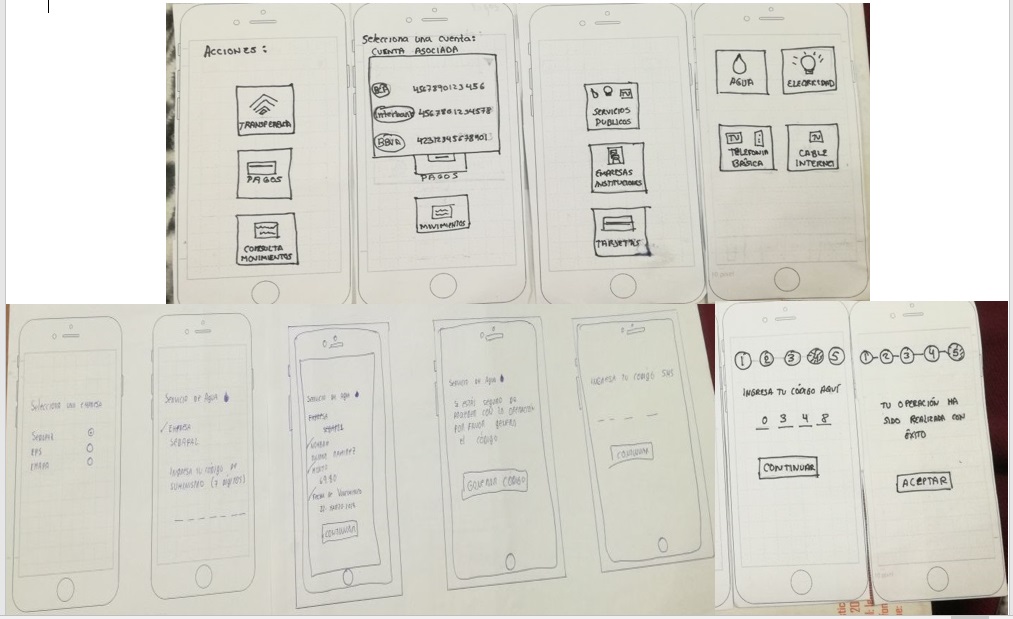 ACCIONES:
TRANSFERENCIA
PAGOS
CONSULTA
MOVIMIENTOS
Selecciona una cuenta:
CUENTA ASOCIADA
BCP 4567890123456
Interbank 4567801234578
BBVA 42312345678901
PAGOS
MOVIMIENTOS
TV
SERVICIOS
PUBLICOS
EMPRESAS
INSTITUCIONES
TARJETAS
AGUA
ELECTRICIDAD
TV
TELEFONIA
BÁSICA
TV
CABLE
INTERNET
Selecciona una empresa
SEDAPAL
EPS
EMAPA
Servicio de Agua
EMPRESA
SEDAPAL
Ingresa tu código de
suministro (7 dígitos)
Servicio de Agua
Empresa
NOMBRE
RAMIREZ
MONTO
69.80
Fecha de Vencimiento
CONTINUAR
Servicio de Agua
Si estás seguro de
proceder con la operación
por favor genera
el código
GENERAR CÓDIGO
INGRESA TU CODIGO SMS
CONTINUAR
1 3 4 5
INGRESA TU CÓDIGO AQUÍ
0 3 4 8
CONTINUAR
1-2-3-4-5
TU OPERACIÓN HA
SIDO REALIZADA CON
ÉXITO
ACEPTAR